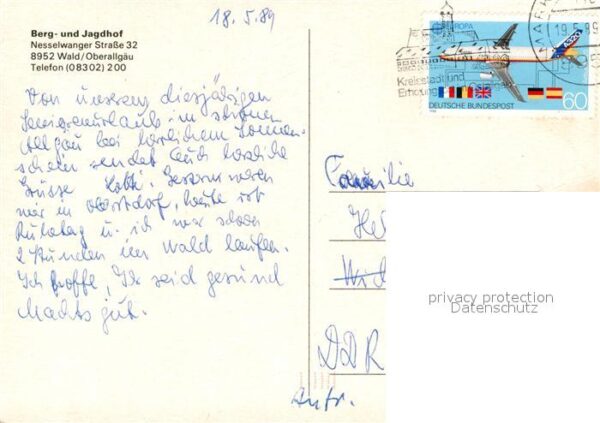 18.5.89
Berg- und Jagdhof
Nesselwanger Straße 32
8952 Wald/Oberallgäu
Telefon (08302) 200
Von unserem diesjährigen
im schönen
Allgäu bei herrlichem Sonnen-
schein sendet Euch herzliche
Grüsse Gestern waren
wir in Oberstdorf, heute ist
Ruhetag u. ich war schon
2 Stunden im Wald laufen.
Ich hoffe, Ihr seid gesund
Machts gut.
Familie
DDR
EUROPA
A320
Kreisstadt und
Erholung
DEUTSCHE BUNDESPOST
60
MARK
19.5.89
privacy protection
Datenschutz